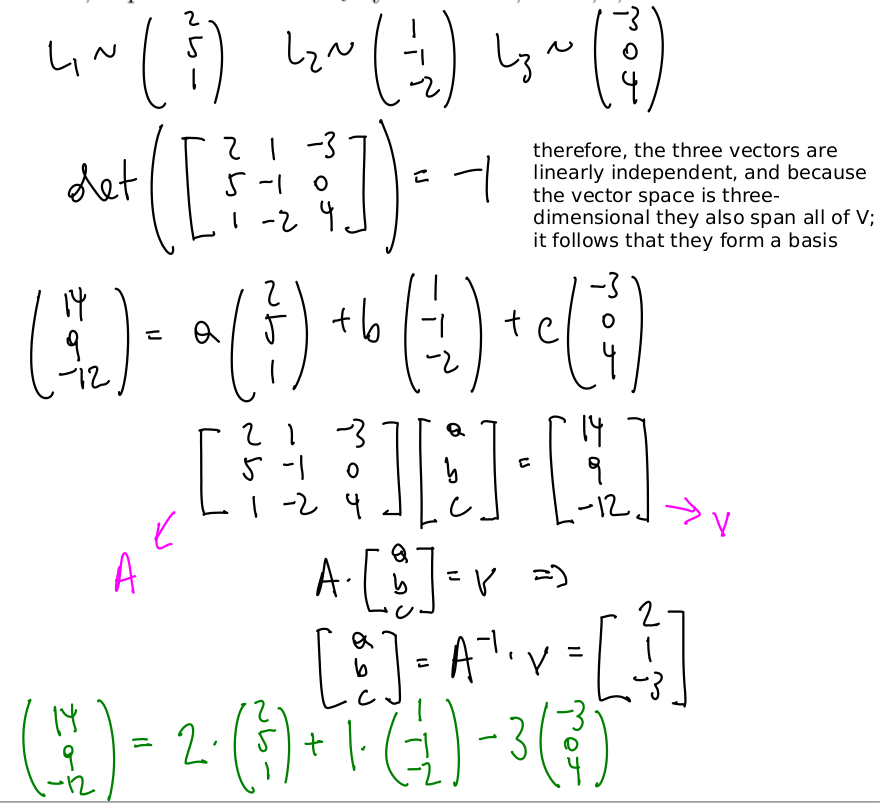 L₁ ~ (2 5 1) L₂ ~ (1 -1 -2) L₃ ~ (-3 0 4)
det([2 1 -3
5 -1 0
1 -2 4]) = -1
therefore, the three vectors are
linearly independent, and because
the vector space is three-
dimensional they also span all of V;
it follows that they form a basis
(14 9 -12) = a(2 5 1) + b(1 -1 -2) + c(-3 0 4)
[2 1 -3
5 -1 0
1 -2 4] [a b c] = [14 9 -12] → v
A
A · [a b c] = v ⇒
[a b c] = A⁻¹ · v = [2 1 -3]
(14 9 -12) = 2 · (2 5 1) + 1 · (1 -1 -2) - 3 (-3 0 4)